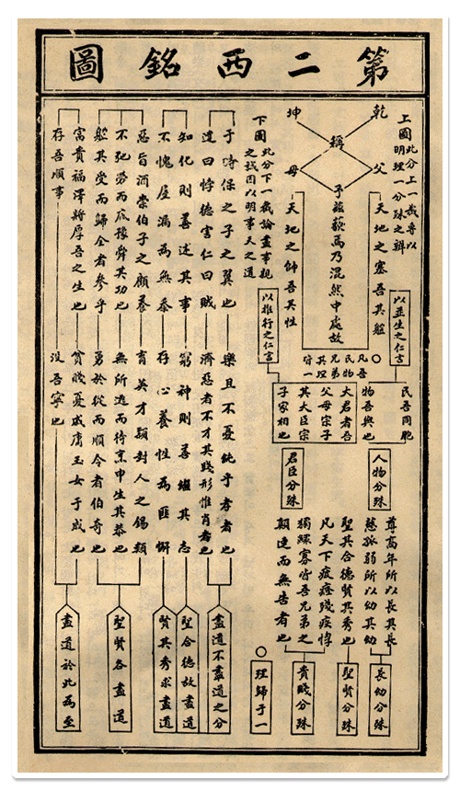 第二西銘圖
上圖
此分上一截專以
明理一分殊之辨
乾父
稱
坤母
天地之塞吾其體
子茲藐焉乃混然中處故
天地之帥吾其性
以並生之仁言
以推行之仁言
○
凡吾
民物
兄弟
其理
皆一
民吾同胞
物吾與也
大君者吾
父母宗子
其大臣宗
子家相也
人物分殊
君臣分殊
尊高年所以長其長
慈孤弱所以幼其幼
聖其合德賢其秀也
凡天下疲癃殘疾惸
獨鰥寡皆吾兄弟之
顛連而無告者也
長幼分殊
聖賢分殊
貴賤分殊
○理歸于一
下圖
此分下一截論盡事親
之誠因以明事天之道
于時保之子之翼也
樂且不憂純乎孝者也
違曰悖德害仁曰賊
濟惡者不才其踐形惟肖者也
知化則善述其事
窮神則善繼其志
不愧屋漏為無忝
存心養性為匪懈
惡旨酒崇伯子之顧養
育英才潁封人之錫類
不弛勞而厎豫舜其功也
無所逃而待烹申生其恭也
體其受而歸全者參乎
勇於從而順令者伯奇也
富貴福澤將厚吾之生也
貧賤憂戚庸玉女于成也
存吾順事
沒吾寧也
盡道不盡道之分
聖合德故盡道
賢其秀求盡道
聖賢各盡道
盡道於此為至